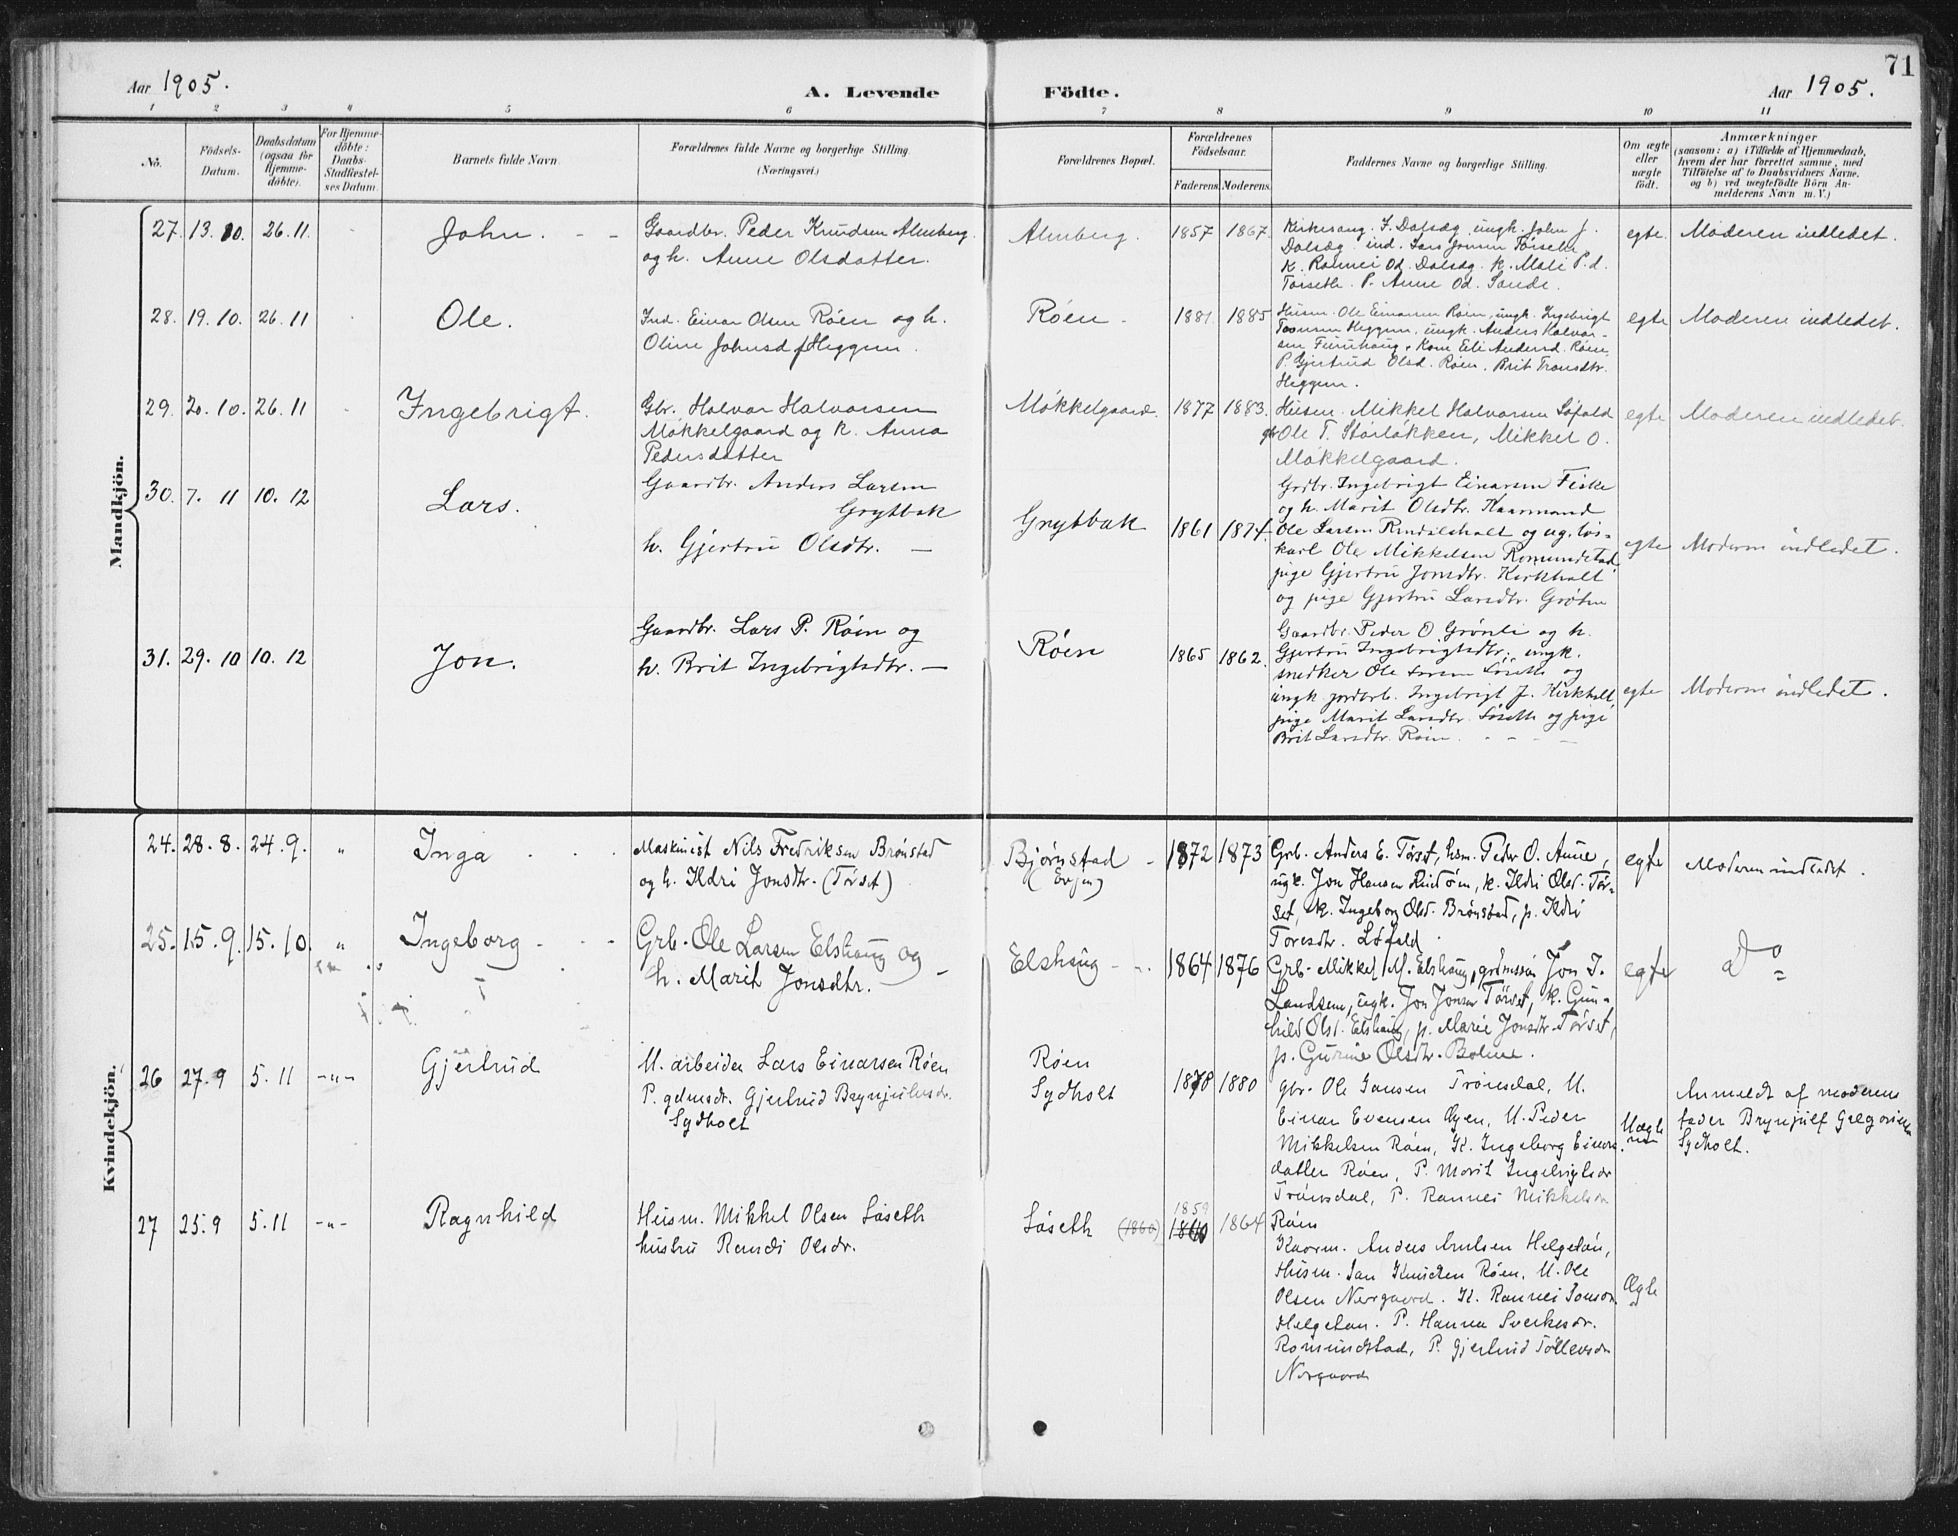 71
Aar 1905.
A. Levende
Födte.
Aar 1905.
1 2 3 4 5 6 7 8 9 10 11
No.
Födsels-
Datum.
Daabsdatum
(ogsaa for
Hjemme-
döbte).
For Hjemme-
döbte:
Daabs-
Stadfæstel-
ses Datum.
Barnets fulde Navn
Forældrenes fulde Navne og borgerlige Stilling
(Næringsvei.)
Forældrenes Bopæl.
Forældrenes
Födselsaar.
Faderens. Moderens.
Faddernes Navne og borgerlige Stilling.
Om ægte
eller
uægte
födt.
Anmærkninger
(saasom: a) i Tilfælde af Hjemmedaab,
hvem der har forrettet samme, med
Tilföielse af to Daabsvidners Navne.
og b) ved uægtefödte Börn An-
melderens Navn m. V.)
Mandkjön.
27. 13. 10. 26. 11. John.
Gaardbr. Peder Knudsen Almberg
og h. Anne Olsdatter.
Almberg. 1857 1867.
Kirkesang. J. Dalsæg, ungk. John J.
Dalsæg. ind. Lars Jonsen Torseth
K. Rannei Od. Dalsæg. K. Mali P.d.
Torseth. P. Anne Od. Sande.
egte. Moderen indledet.
28. 19. 10. 26. 11 Ole.
Ind. Einar Olsen Röen og h.
Oline Johnsd. f Heggem.
Röen 1881 1885
Husm. Ole Einarsen Röen, ungk. Ingebrigt
Heggem, ungk. Anders Halvor-
sen Furuhaug. Kone Eli Andersd. Röen,
P. Gjertrud Olsd. Röen, Brit
Heggem.
egte Moderen indledet.
29. 20. 10. 26. 11 Ingebrigt.
Gbr. Halvor Halvorsen
Møkkelgaard og K. Anna
Pedersdatter
Møkkelgaard. 1877 1883.
Husm. Mikkel Halvorsen Løfald
gbr Ole T. Storløkken, Mikkel O.
Møkkelgaard.
egte Moderen indledet.
30. 7. 11 10. 12 Lars.
Gaardbr. Anders Larsen
Grytbak
h. Gjertru Olsdtr. —
Grytbak 1861 1874
Grdbr. Ingebrigt Einarsen Fiske
og h. Marit Olsdtr. Kaarmand
Ole Larsen Rindalsholt og ug. løs-
karl Ole Mikkelsen Romundstad
pige Gjertru Jonsdtr. Kirkholt
og pige Gjertru Larsdtr. Gröten
egte Moderen indledet.
31. 29. 10 10. 12 Jon.
Gaardbr. Lars P. Röen og
h. Brit Ingebrigtsdtr. —
Röen 1865 1862.
Gaardbr. Peder O Grönli og h.
Gjertru Ingebrigtsdtr. ungk.
snedker Ole Løseth og
ungk. gardbr. Ingebrigt J. Kirkholt,
pige Marit Larsdtr. Løseth og pige
Brit Larsdtr. Röen.
egte Moderen indledet.
Kvindekjön.
24. 28. 8. 24. 9. „ Inga
Maskinist Nils Fredriksen Brönstad
og h. Ildri Jonsdtr. (Tørset)
Bjørnstad
(Evjen)
1872 1873
Grb. Anders E. Tørset, hsm. Peder O. Aune,
ugk. Jon Hansen, k. Ildri Olsd. Tør-
set, k. Ingeborg Olsd. Brönstad, p. Ildri
Toresdtr. Løfald
egte Moderen indledet.
25. 15. 9. 15. 10. „ Ingeborg
Grb. Ole Larsen Elshaug og
h. Marit Jonsdtr.
Elshaug 1864 1876
Grb. Mikkel M. Elshaug, grdmssøn Jon I.
Landsem, ugk. Jon Jonsen Tørset, k. Gun-
hild Olsd. Elshaug, p. Marie Jonsdtr. Tørset,
p. Gurine Olsdtr. Bolme.
egte Do
26 27. 9 5. 11 -„- Gjertrud
U. arbeider Lars Einarsen Röen
P. gdmsdr. Gjertrud Brynjulvsdr.
Sydholt
Röen
Sydholt
1878 1880
gbr. Ole Jansen Trönsdal, U.
Einar Evensen Øyen, U. Peder
Mikkelsen Röen, K. Ingeborg Einars
datter Röen, P. Marit Ingebrigtsdr
Trönsdal, P. Rannei Mikkelsdr
Röen
Uægte
Anmeldt af moderens
fader Brynjulf Gregorisen
Sydholt.
27 25. 9 5. 11 -„- Ragnhild
Husm. Mikkel Olsen Løseth
hustru Randi Olsdr.
Løseth (1860) 1859 1860 1864
Kaarm. Anders Arntsen Helgetön,
Husm. Jan Knudsen Röen, U. Ole
Olsen Nergaard. K. Rannei Jonsdr.
Helgetøn. P. Hanna Sverkesdr.
Romundstad, P. Gjertrud Tollevsdr
Nergaard
Ægte